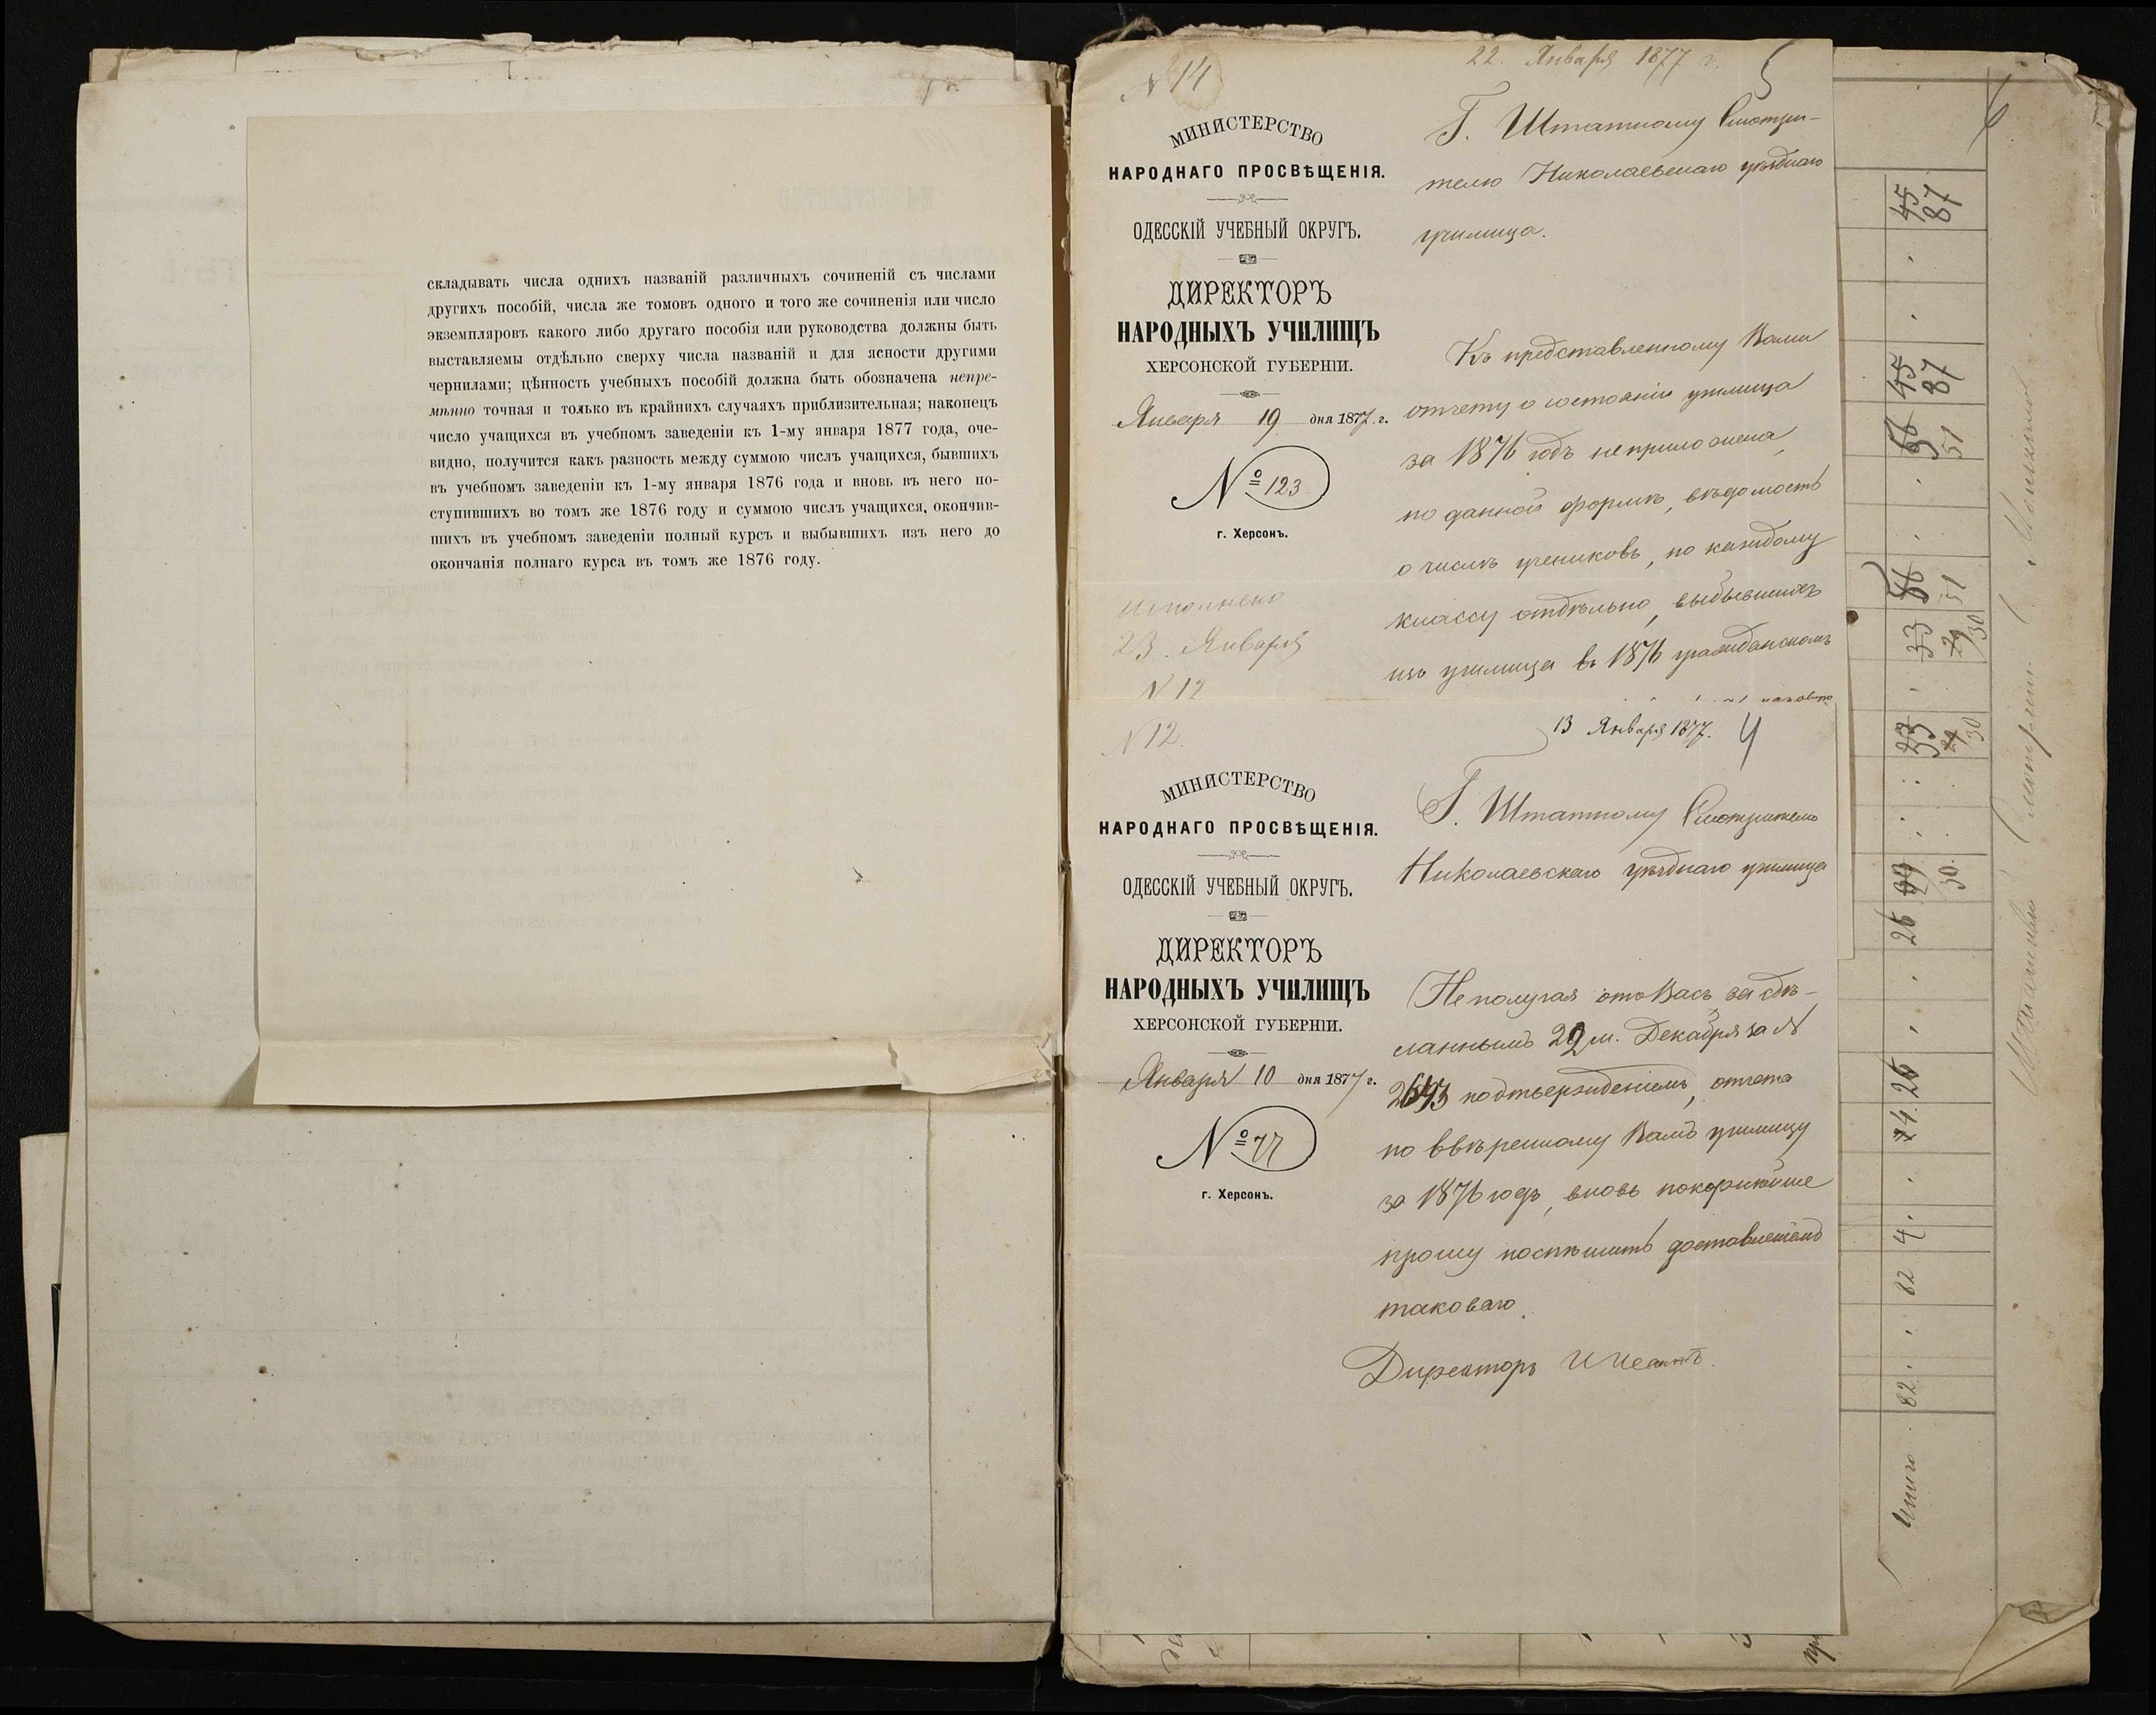 складывать числа однихъ названій различныхъ сочиненій съ числами
другихъ пособій, числа же томовъ одного и того же сочиненія или число
экземпляровъ какого либо другаго пособія или руководства должны быть
выставляемы отдѣльно сверху числа названій и для ясности другими
чернилами; цѣнность учебныхъ пособій должна быть обозначена непре-
мѣнно точная и только въ крайнихъ случаяхъ приблизительная; наконецъ
число учащихся въ учебномъ заведеніи къ 1-му января 1877 года, оче-
видно, получится какъ разность между суммою числъ учащихся, бывшихъ
въ учебномъ заведеніи къ 1-му января 1876 года и вновь въ него по-
ступившихъ во томъ же 1876 году и суммою числъ учащихся, окончив-
шихъ въ учебномъ заведеніи полный курсъ и выбывшихъ изъ него до
окончанія полнаго курса въ томъ же 1876 году.
N 14
22. Января 1877 г.
5
МИНИСТЕРСТВО
НАРОДНАГО ПРОСВѢЩЕНІЯ.
ОДЕССКІЙ УЧЕБНЫЙ ОКРУГЪ.
ДИРЕКТОРЪ
НАРОДНЫХЪ УЧИЛИЩЪ
ХЕРСОНСКОЙ ГУБЕРНІИ.
Января 19 дня 1877 г.
№ 123
г. Херсонъ.
Исполнено
23 Января
N 12
Г. Штатному Смотри-
телю Николаевскаго уѣзднаго
училища.
Къ представленному Вами
отчету о состояніи училища
за 1876 годъ не приложена,
по данной формѣ, вѣдомость
о числѣ учениковъ, по каждому
классу отдѣльно, выбывшихъ
изъ училища въ 1876 гражданскомъ
N 12.
13 Января 1877.
4
МИНИСТЕРСТВО
НАРОДНАГО ПРОСВѢЩЕНІЯ.
ОДЕССКІЙ УЧЕБНЫЙ ОКРУГЪ.
ДИРЕКТОРЪ
НАРОДНЫХЪ УЧИЛИЩЪ
ХЕРСОНСКОЙ ГУБЕРНІИ.
Января 10 дня 1877 г.
№ 77
г. Херсонъ.
Г. Штатному Смотрителю
Николаевскаго уѣзднаго училища
Не получая отъ Васъ за сдѣ-
ланнымъ 29 м. Декабря за №
2693 подтвержденіемъ, отчета
по ввѣренному Вамъ училищу
за 1876 годъ, вновь покорнѣйше
прошу поспѣшить доставленіемъ
таковаго.
Директоръ
6
Итого 82 82 4 26 26 30
45 87 45 87
Штатный Смотритель